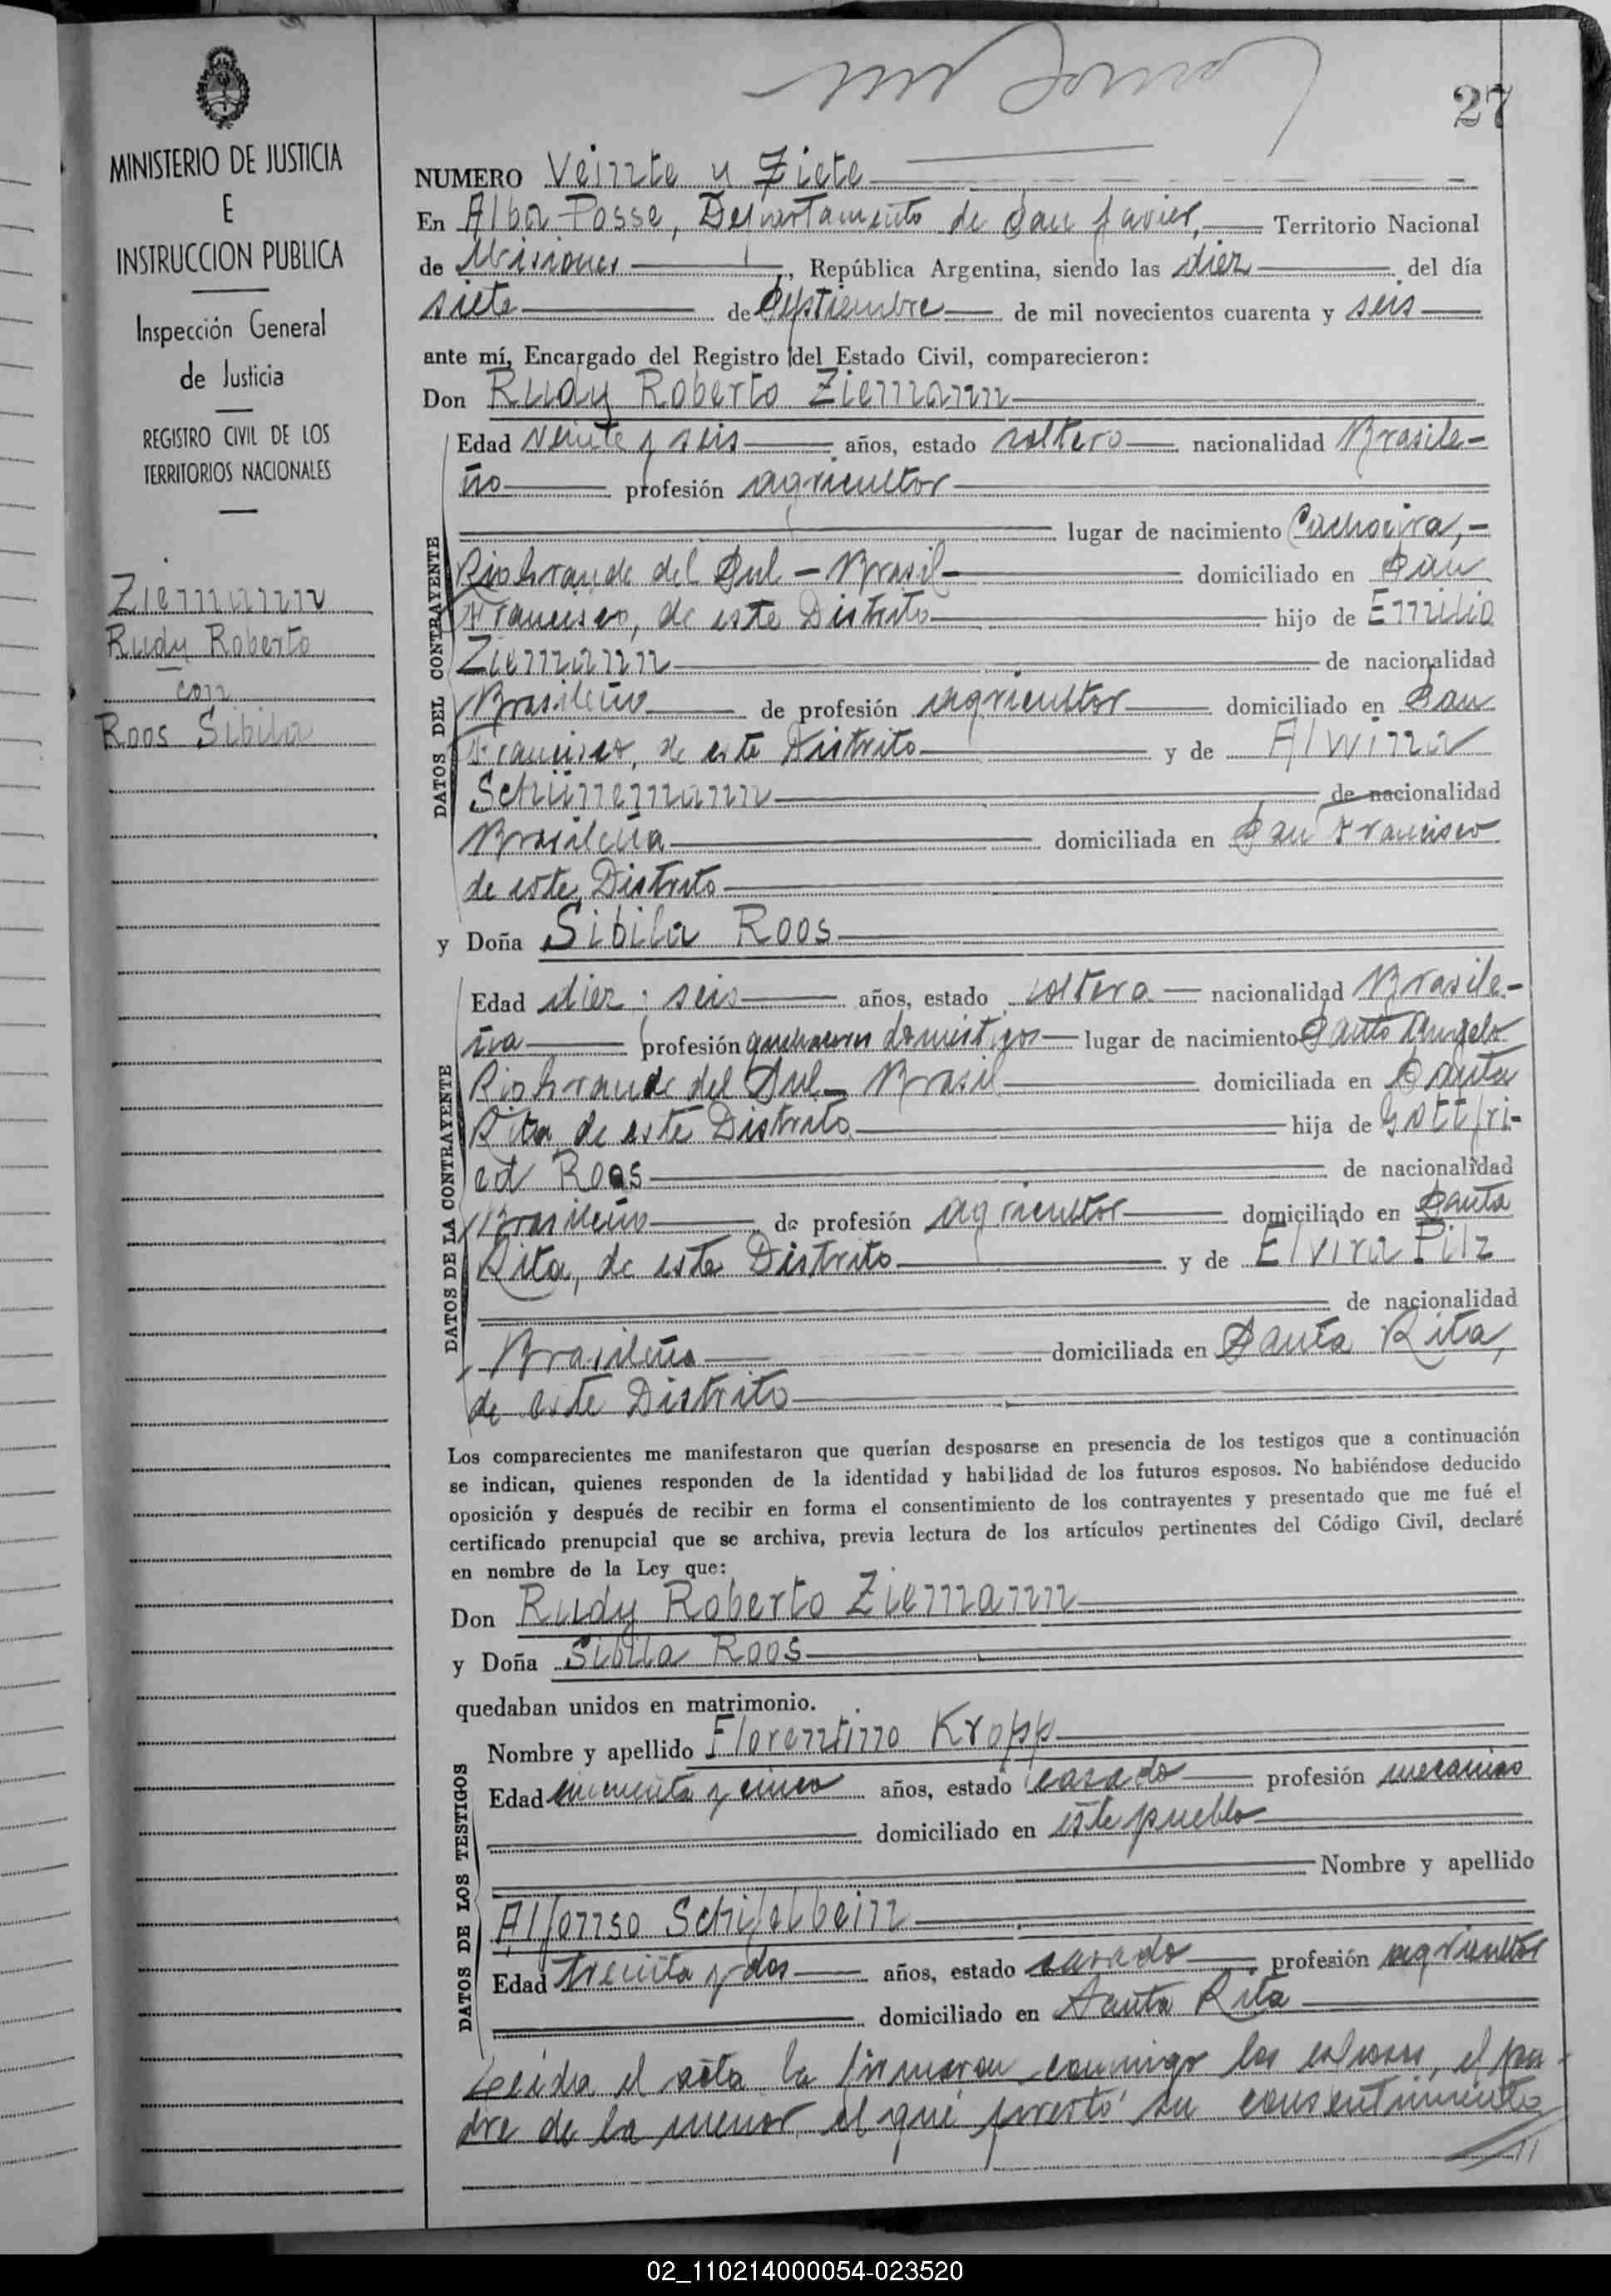 27
MINISTERIO DE JUSTICIA
E
INSTRUCCION PUBLICA
Inspección General
de Justicia
REGISTRO CIVIL DE LOS
TERRITORIOS NACIONALES
Ziemann
Rudy Roberto
con
Roos Sibila
NUMERO Veinte y Ziete
En Alba Posse, Departamento de San Javier, Territorio Nacional
de Misiones, República Argentina, siendo las diez del día
siete de Septiembre de mil novecientos cuarenta y seis
ante mí, Encargado del Registro del Estado Civil, comparecieron:
Don Rudy Roberto Ziemann
DATOS DEL CONTRAYENTE
Edad veinte y seis años, estado soltero nacionalidad Brasile-
ño profesión agricultor
lugar de nacimiento Cachoeira,-
Rio Grande del Sul - Brasil- domiciliado en San
Francisco, de este Distrito hijo de Emilio
Ziemann de nacionalidad
Brasileño de profesión agricultor domiciliado en San
Francisco, de este Distrito y de Alwina
Schünemann de nacionalidad
Brasileña domiciliada en San Francisco
de este Distrito
y Doña Sibila Roos
DATOS DE LA CONTRAYENTE
Edad diez i seis años, estado soltera nacionalidad Brasile-
ña profesión quehaceres domésticos lugar de nacimiento Santo Angelo
Rio Grande del Sul - Brasil domiciliada en Santa
Rita, de este Distrito hija de Gottfri-
ed Roos de nacionalidad
Brasileño de profesión agricultor domiciliado en Santa
Rita, de este Distrito y de Elvira Pilz
de nacionalidad
Brasileña domiciliada en Santa Rita,
de este Distrito
Los comparecientes me manifestaron que querían desposarse en presencia de los testigos que a continuación
se indican, quienes responden de la identidad y habilidad de los futuros esposos. No habiéndose deducido
oposición y después de recibir en forma el consentimiento de los contrayentes y presentado que me fué el
certificado prenupcial que se archiva, previa lectura de los artículos pertinentes del Código Civil, declaré
en nombre de la Ley que:
Don Rudy Roberto Ziemann
y Doña Sibila Roos
quedaban unidos en matrimonio.
DATOS DE LOS TESTIGOS
Nombre y apellido Florentino Kropp
Edad cincuenta y cinco años, estado casado profesión mecanico
domiciliado en este pueblo
Nombre y apellido
Alfonso Schifelbein
Edad treinta y dos años, estado casado profesión agricultor
domiciliado en Santa Rita
Leída el acta la firmaron conmigo los esposos, el pa-
dre de la menor, el que prestó su consentimiento
02_110214000054-023520